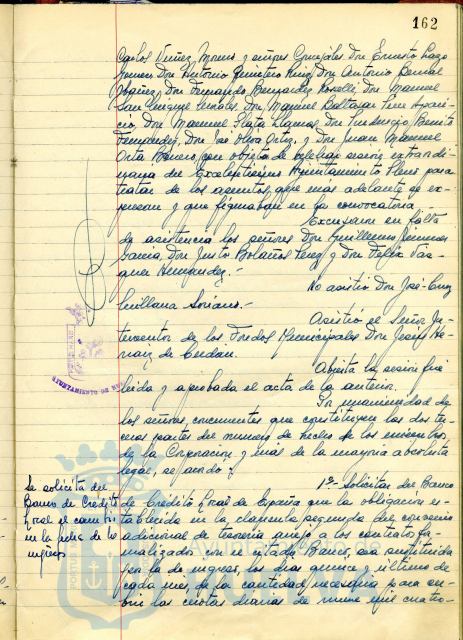 162
Carlos Núñez Moreno y señores Concejales Don Ernesto Lazo
Don Antonio Quintero Ruiz, Don Antonio Bernal
Ibáñez, Don Fernando Bermúdez Roselló, Don Manuel
Don Manuel Baltasar
Don Manuel Plata Llamas, Don Benito
Fernández, Don José Oliva Ortiz, y Don Juan Manuel
Orta Romero, con objeto de celebrar sesión extraordi-
naria del Excelentísimo Ayuntamiento Pleno para
tratar de los asuntos que más adelante se ex-
presan y que figuraban en la convocatoria.
Excusaron su falta
de asistencia los señores Don Guillermo Jiménez
García, Don Justo Bolaños Pérez y Don Félix Vaz-
quez Hernández.-
No asistió Don José Cruz
Quillana Soriano.-
Asistió el Señor In-
terventor de los Fondos Municipales Don Jesús
de Cerdan.
Abierta la sesión fue
leida y aprobada el acta de la anterior.
Por unanimidad de
los señores concurrentes que constituyen las dos ter-
ceras partes del número de hecho de los miembros
de la Corporación y más de la mayoría absoluta
legal, se acordó:
1º- Solicitar del Banco
de Crédito Local de España que la obligación es-
tablecida en la cláusula segunda del convenio
adicional de tesorería anejo a los contratos for-
malizados con el citado Banco, sea sustituida
por la de ingresar los dias quince y último de
cada mes, de la cantidad necesaria para cu-
brir las cuotas diarias de nueve mil cuatro-
Se solicita del
Banco de Crédito
Local el cambio
en la fecha de los
ingresos
AYUNTAMIENTO DE
Ayuntamiento de
HUELVA